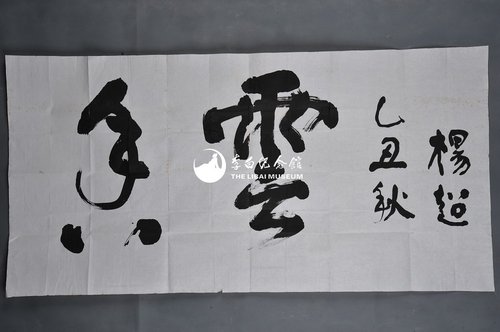 雲
乙丑秋
楊超
李白纪念馆
THE LIBAI MUSEUM